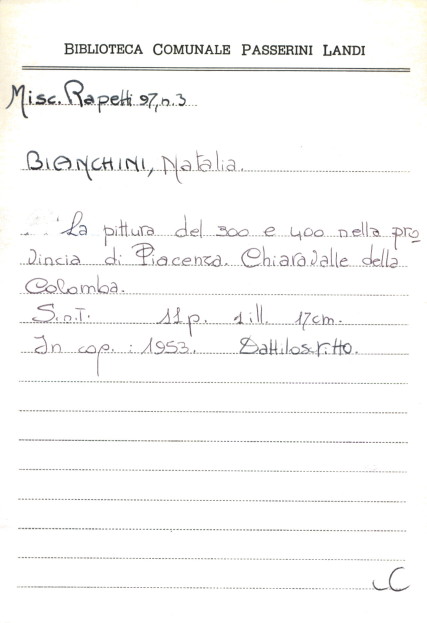 BIBLIOTECA COMUNALE PASSERINI LANDI
Misc. Rapetti 97, n. 3
BIANCHINI, Natalia.
La pittura del 300 e 400 nella pro
vincia di Piacenza. Chiaravalle della
Colomba.
S.n.T. 11p. 1 ill. 17cm.
In cop.: 1953. Dattiloscritto.
C